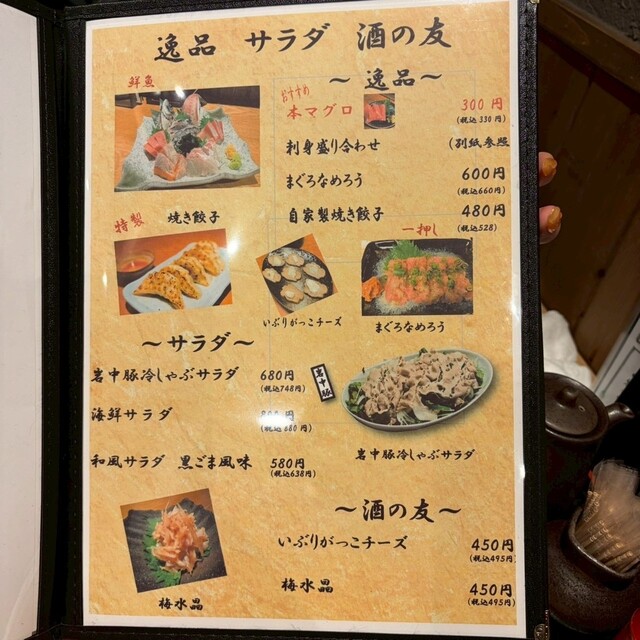 逸品 サラダ 酒の友
鮮魚
～ 逸品 ～
おすすめ
本マグロ 300円
(税込 330円)
刺身盛り合わせ (別紙参照
まぐろなめろう 600円
(税込660円)
特製 焼き餃子
自家製焼き餃子 480円
(税込528)
一押し
いぶりがっこチーズ
まぐろなめろう
～サラダ～
岩中豚冷しゃぶサラダ 680円
(税込748円)
岩中豚
海鮮サラダ 800円
(税込880円)
岩中豚冷しゃぶサラダ
和風サラダ 黒ごま風味 580円
(税込638円)
～酒の友～
いぶりがっこチーズ 450円
(税込495円)
梅水晶 450円
(税込495円)
梅水晶